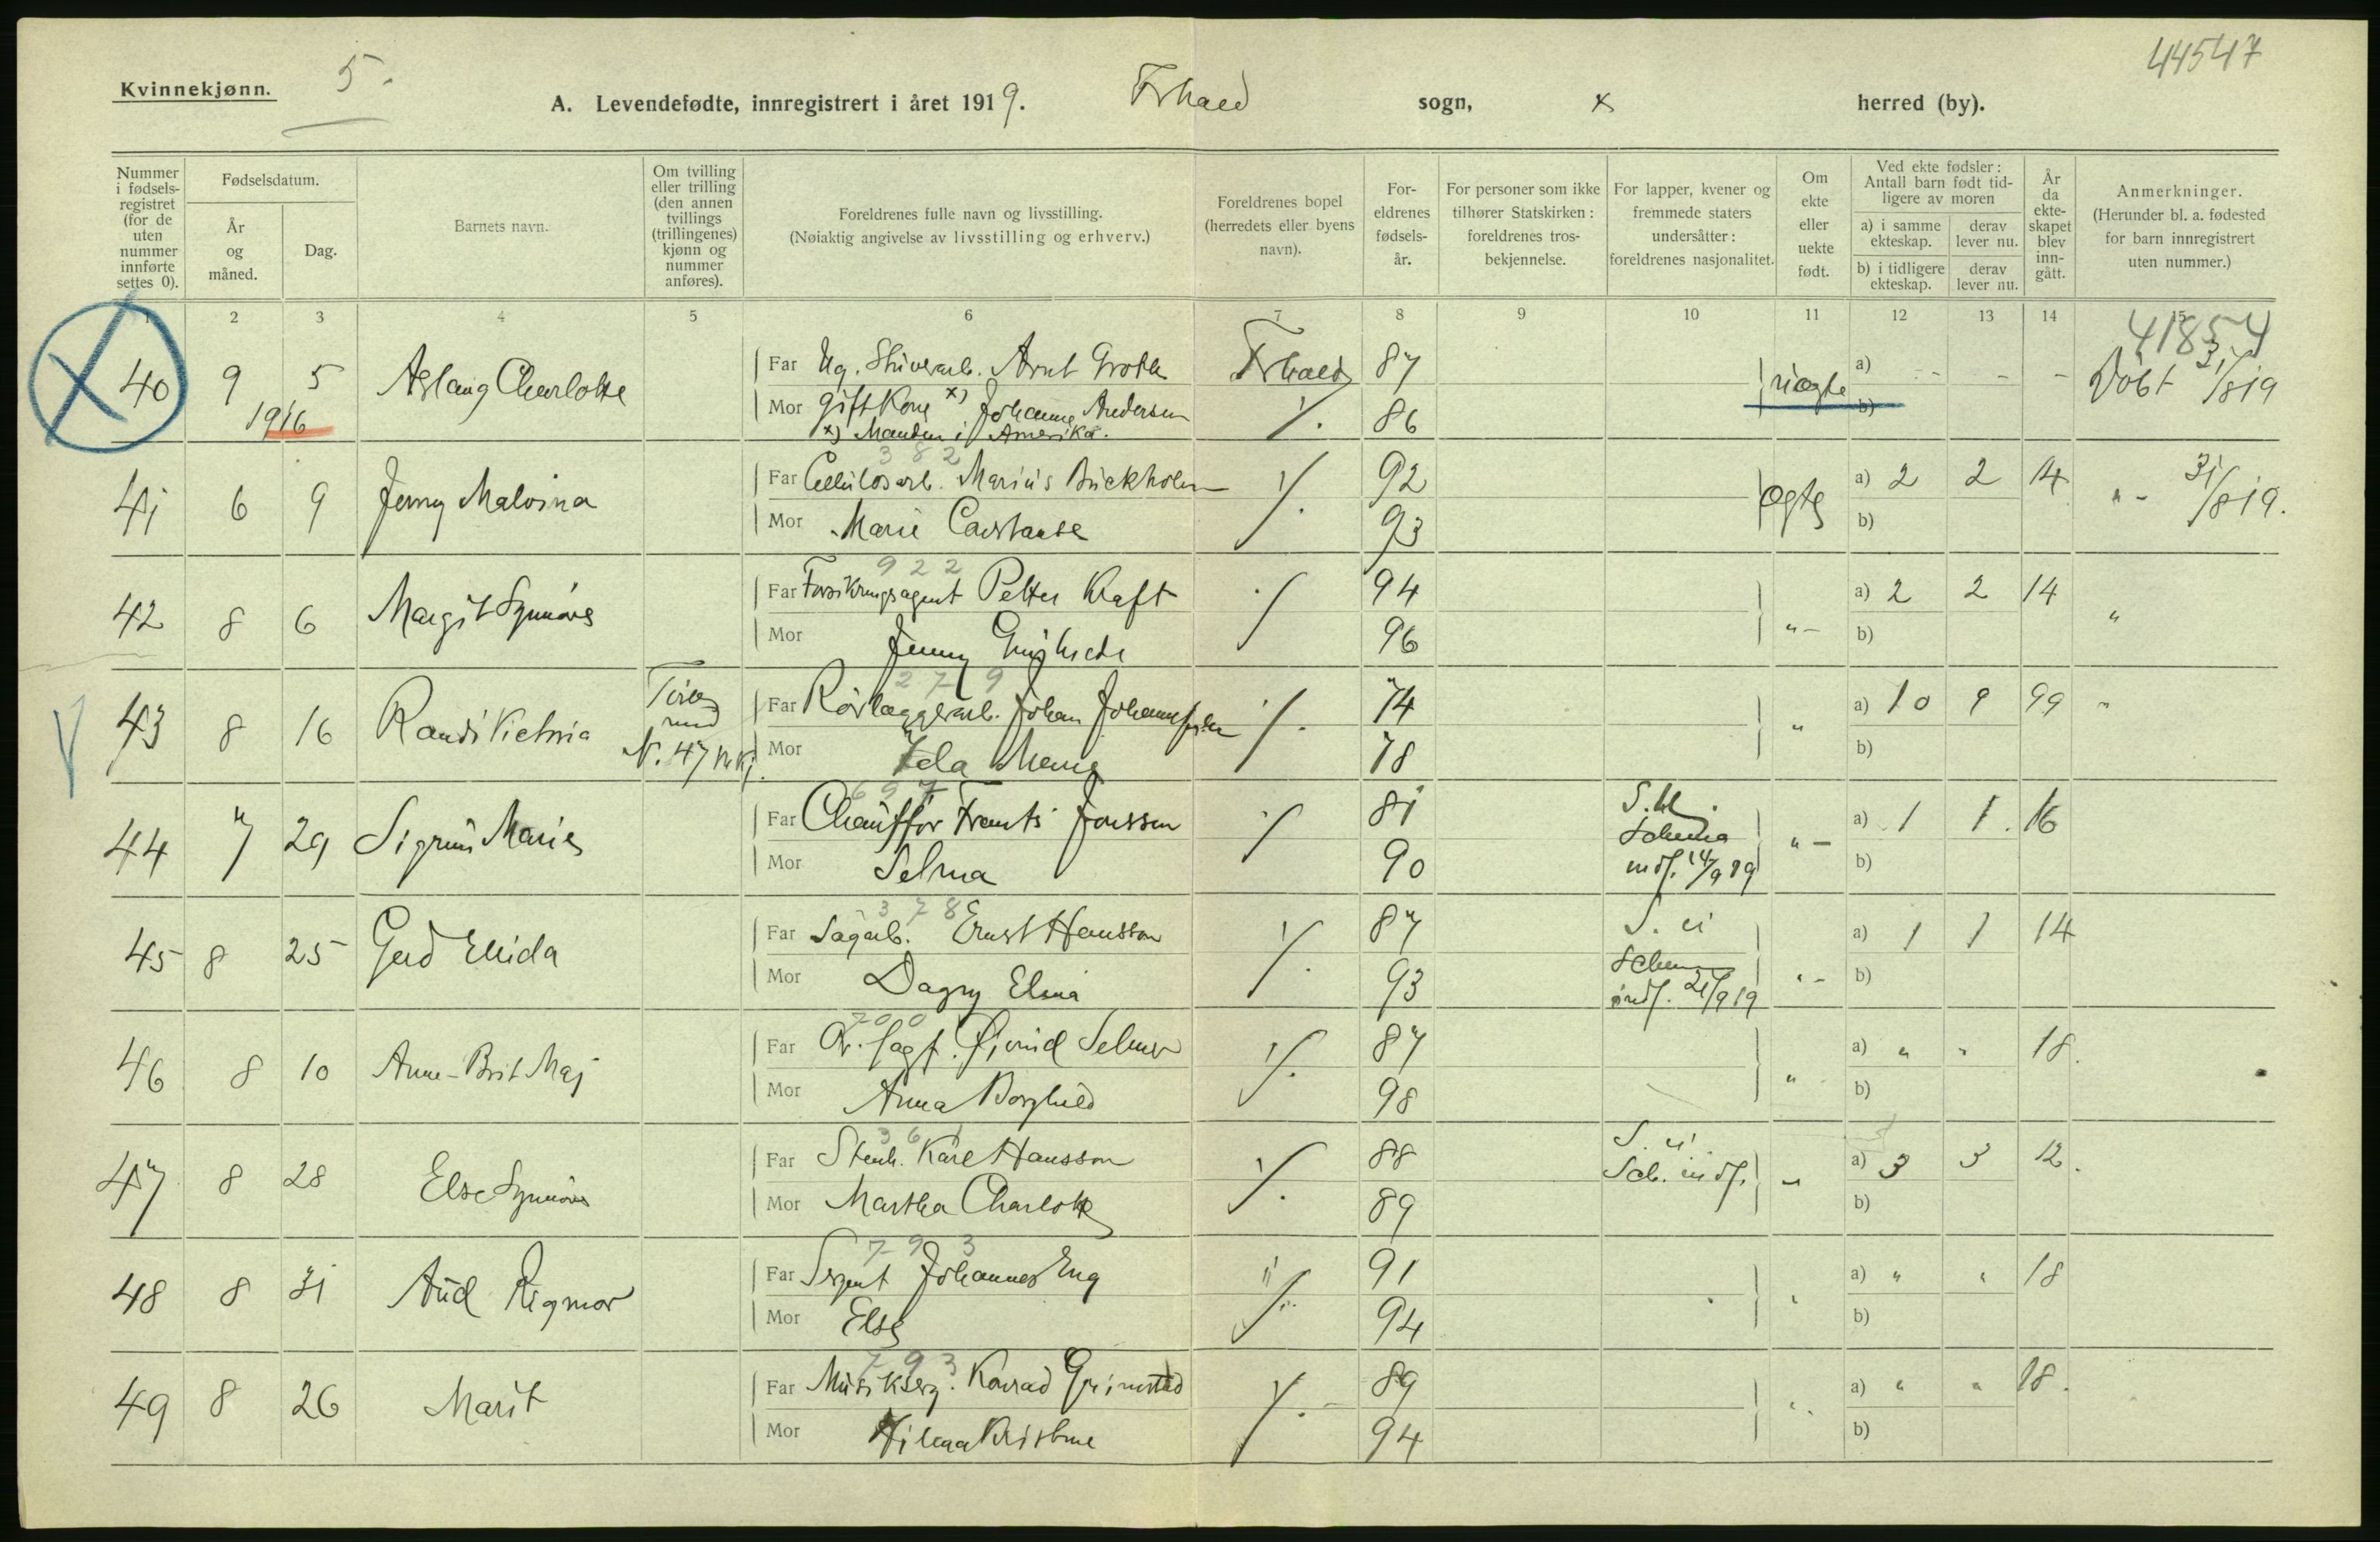 44547
Kvinnekjønn. 5.
A. Levendefødte, innregistrert i året 1919. Frhald sogn, x herred (by).
Nummer i fødsels-registret (for de uten nummer innførte settes 0).
Fødselsdatum.
År og måned.
Dag.
Barnets navn.
Om tvilling eller trilling (den annen tvillings (trillingenes) kjønn og nummer anføres).
Foreldrenes fulle navn og livsstilling.
(Nøiaktig angivelse av livsstilling og erhverv.)
Foreldrenes bopel (herredets eller byens navn).
For-eldrenes fødsels-år.
For personer som ikke tilhører Statskirken: foreldrenes tros-bekjennelse.
For lapper, kvener og fremmede staters undersåtter: foreldrenes nasjonalitet.
Om ekte eller uekte født.
Ved ekte fødsler: Antall barn født tid-ligere av moren
a) i samme ekteskap.
derav lever nu.
b) i tidligere ekteskap.
derav lever nu.
År da ekte-skapet blev inn-gått.
Anmerkninger.
(Herunder bl. a. fødested for barn innregistrert uten nummer.)
1 2 3 4 5 6 7 8 9 10 11 12 13 14 15
41854
40 9 5 Aslaug Charlotte Far Ug. Stuerarb. Arnt Groth Frhald 87 uægte a) - - - Døbt 31/8 19
1916 Mor gift Kone x) Johanne Andersen ·/. 86 b)
x) Manden i Amerika.
382
41 6 9 Jenny Malvina Far Cellulosarb. Marius Buckholm ·/. 92 ægte a) 2 2 14 " - 31/8 19.
Mor Marie Constanse 93 b)
922
42 8 6 Margit Synnøve Far Forsikringsagent Petter Kraft ·/. 94 " - a) 2 2 14 "
Mor Jenny 96 b)
279
43 8 16 Randi Victoria Far Rørlæggerarb. Johan Johannessen ·/. 74 " a) 10 9 99 "
N. 47 m.kj. Mor Ida Marie 78 b)
697
44 7 29 Sigrun Marie Far Chauffør Frants Jonsson ·/. 81 S. U. Schema indf. 14/9 19 " - a) 1 1 16
Mor Selma 90 b)
378
45 8 25 Gerd Elida Far Sagarb. Ernst Hansson ·/. 87 S. U. Schema indf. 21/9 19 " - a) 1 1 14
Mor Dagny Elina 93 b)
700
46 8 10 Anne-Brit Maj Far Ov. sagf. Øivind Selmer ·/. 87 " a) " " 18.
Mor Anna Borghild 98 b)
361
47 8 28 Else Synnøve Far Stenh. Karl Hansson ·/. 88 S. U. Sch. indf. " a) 3 3 12.
Mor Martha Charlotte 89 b)
793
48 8 31 Aud Rigmor Far Sergent Johannes Eng ·/. 91 " a) " " 18
Mor Else 94 b)
793
49 8 26 Marit Far Musikserg. Konrad Grimstad ·/. - 89 " a) " " 18.
Mor Hilma Kristine 94 b)